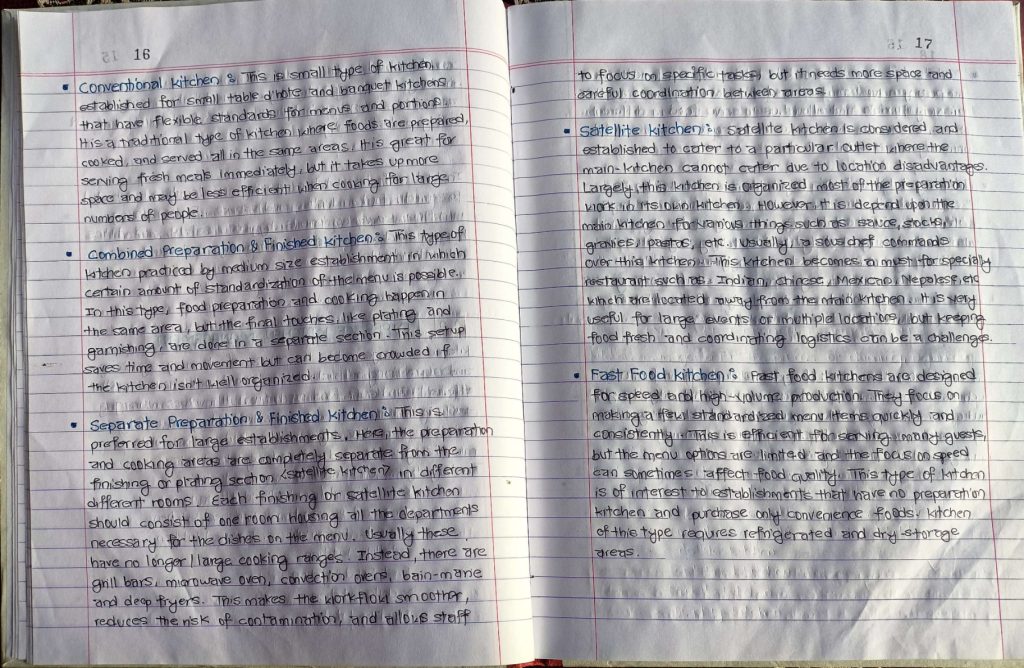 16
• Conventional kitchen : This is small type of kitchen
established for small table d'hote and banquet kitchens
that have flexible standards for menus and portions.
It is a traditional type of kitchen where foods are prepared,
cooked, and served all in the same areas. It is great for
serving fresh meals immediately, but it takes up more
space and may be less efficient when cooking for large
numbers of people.
• Combined Preparation & Finished kitchen : This type of
kitchen practiced by medium size establishment in which
certain amount of standardization of the menu is possible.
In this type, food preparation and cooking happen in
the same area, but the final touches, like plating and
garnishing, are done in a separate section. This setup
saves time and movement but can become crowded if
the kitchen isn't well organized.
• Separate Preparation & Finished kitchen : This is
preferred for large establishments. Here, the preparation
and cooking areas are completely separate from the
finishing or plating section (satellite kitchen) in different
different rooms. Each finishing or satellite kitchen
should consist of one room housing all the departments
necessary for the dishes on the menu. Usually these
have no longer large cooking ranges. Instead, there are
grill bars, microwave oven, convection ovens, bain-marie
and deep fryers. This makes the workflow smoother,
reduces the risk of contamination, and allows staff
17
to focus on specific tasks, but it needs more space and
careful coordination between areas.
• Satellite kitchen : Satellite kitchen is considered and
established to cater to a particular outlet where the
main kitchen cannot cater due to location disadvantages.
Largely this kitchen is organized most of the preparation
work in its own kitchen. However, it is depend upon the
main kitchen for various things such as sauce, stocks,
gravies, pastas, etc. Usually, a sous chef commands
over this kitchen. This kitchen becomes a must for specially
restaurant such as: Indian, Chinese, Mexican, Nepalese, etc
which are located away from the main kitchen. It is very
useful for large events or multiple locations, but keeping
food fresh and coordinating logistics can be a challenge.
• Fast Food kitchen : Fast food kitchens are designed
for speed and high-volume production. They focus on
making a few standardized menu items quickly and
consistently. This is efficient for serving many guests,
but the menu options are limited and the focus on speed
can sometimes affect food quality. This type of kitchen
is of interest to establishments that have no preparation
kitchen and purchase only convenience foods. kitchen
of this type requires refrigerated and dry-storage
areas.